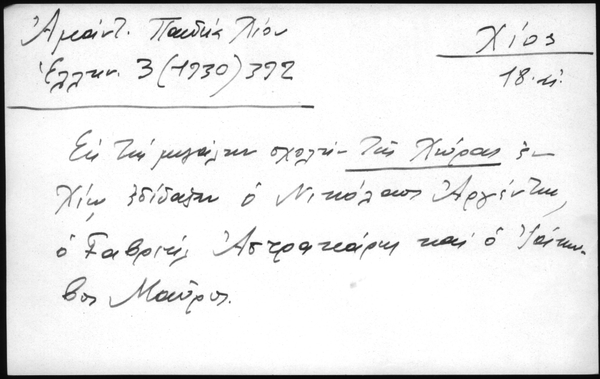 Ἀμάντ. Παιδεία Χίου
Χίος
Ἑλλην. 3 (1930) 392
18. αἰ.
Εἰς τὴν μεγάλην σχολὴν τῆς Χώρας ἐν
Χίῳ ἐδίδαξαν ὁ Νικόλαος Ἀργέντης,
ὁ Γαβριὴλ Ἀστρακάρης καὶ ὁ Ἰάκω-
βος Μαῦρος.